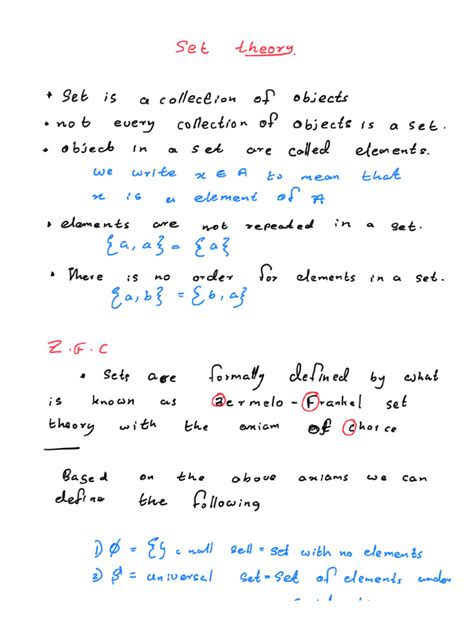 Set theory.
• Set is a collection of objects
• not every collection of objects is a set.
• object in a set are called elements.
we write x ∈ A to mean that
x is a element of A
• elements are not repeated in a set.
{a, a} = {a}
• There is no order for elements in a set.
{a, b} = {b, a}
Z.F.C
• Sets are formally defined by what
is known as Zermelo - Frankel set
theory with the axiam of Choice
Based on the above axiams we can
define the following
1) ϕ = {} = null sell = set with no elements
2) = universal set = set of elements under